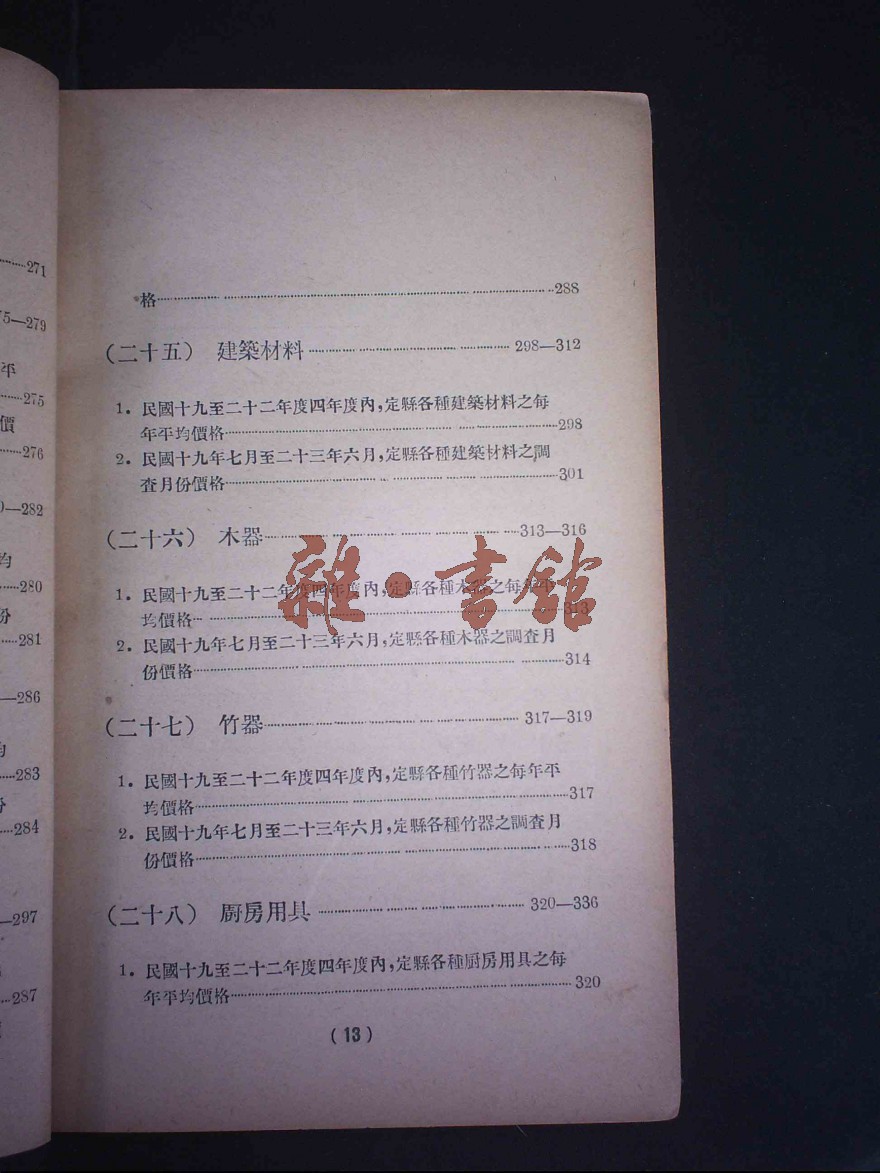 271
5—279
平
275
價
276
0—282
均
280
份
281
—286
283
284
—297
287
格 288
(二十五) 建築材料 298—312
1. 民國十九至二十二年度四年度內,定縣各種建築材料之每
年平均價格 298
2. 民國十九年七月至二十三年六月,定縣各種建築材料之調
查月份價格 301
(二十六) 木器 313—316
1. 民國十九至二十二年度四年度內,定縣各種木器之每年平
均價格 313
2. 民國十九年七月至二十三年六月,定縣各種木器之調查月
份價格 314
(二十七) 竹器 317—319
1. 民國十九至二十二年度四年度內,定縣各種竹器之每年平
均價格 317
2. 民國十九年七月至二十三年六月,定縣各種竹器之調查月
份價格 318
(二十八) 廚房用具 320—336
1. 民國十九至二十二年度四年度內,定縣各種廚房用具之每
年平均價格 320
(13)
雜·書館